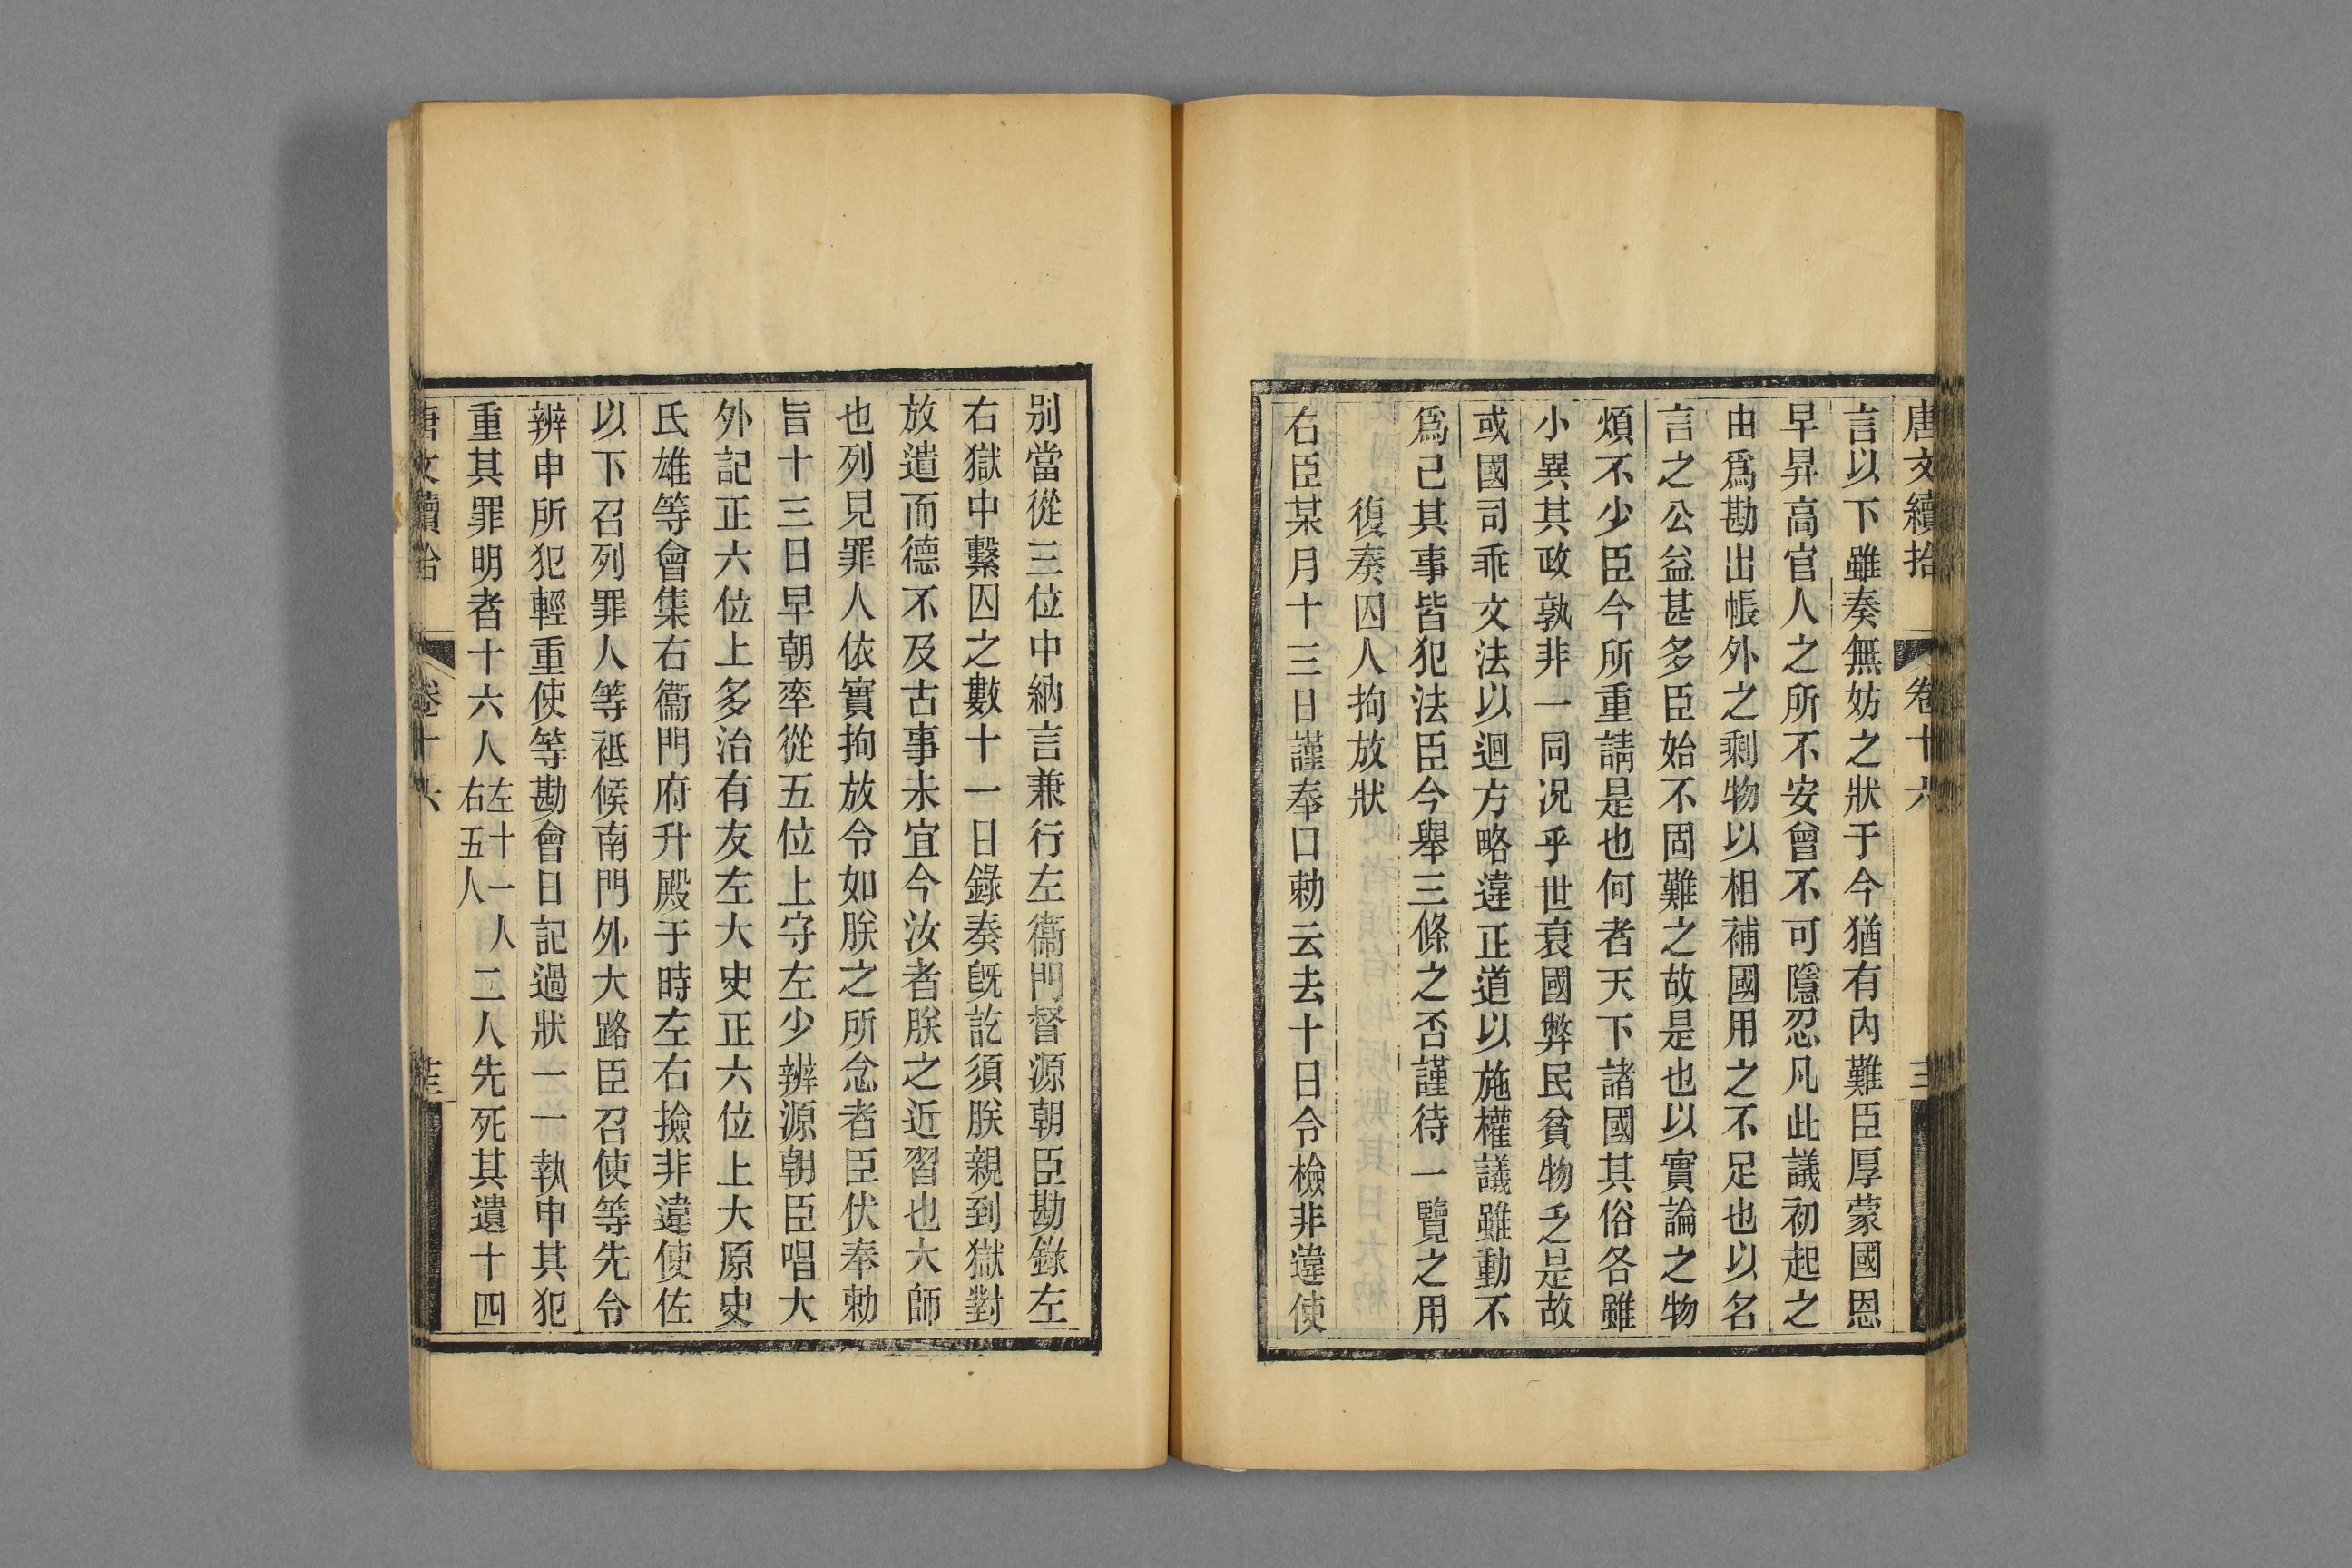 唐文續拾 卷十六
言以下雖奏無妨之狀于今猶有內難臣厚蒙國恩
早昇高官人之所不安曾不可隱忍凡此議初起之
由爲勘出帳外之剩物以相補國用之不足也以名
言之公益甚多臣始不固難之故是也以實論之物
煩不少臣今所重請是也何者天下諸國其俗各雖
小異其政孰非一同况乎世衰國弊民貧物乏是故
或國司乖文法以迴方略違正道以施權議雖動不
爲己其事皆犯法臣今舉三條之否謹待一覽之用
復奏囚人拘放狀
右臣某月十三日謹奉口勅云去十日令檢非違使
別當從三位中納言兼行左衞門督源朝臣勘錄左
右獄中繫囚之數十一日錄奏旣訖須朕親到獄對
放遣而德不及古事未宜今汝者朕之近習也大師
也列見罪人依實拘放令如朕之所念者臣伏奉勅
旨十三日早朝率從五位上守左少辨源朝臣唱大
外記正六位上多治有友左大史正六位上大原史
氏雄等會集右衞門府升殿于時左右撿非違使佐
以下召列罪人等祗候南門外大路臣召使等先令
辨申所犯輕重使等勘會日記過狀一一執申其犯
重其罪明者十六人左十一人右五人二人先死其遺十四
唐文續拾 卷十六